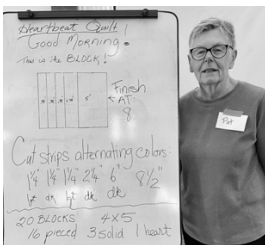 Heartbeat Quilt!
Good Morning!
This is the BLOCK!
Finish
AT
8
Cut strips alternating colors:
1¼" 1¼" 1¼" 2¼" 6" 8½"
lgt dk lgt dk dk
20 BLOCKS 4x5
16 pieced 3 solid 1 heart
Pat